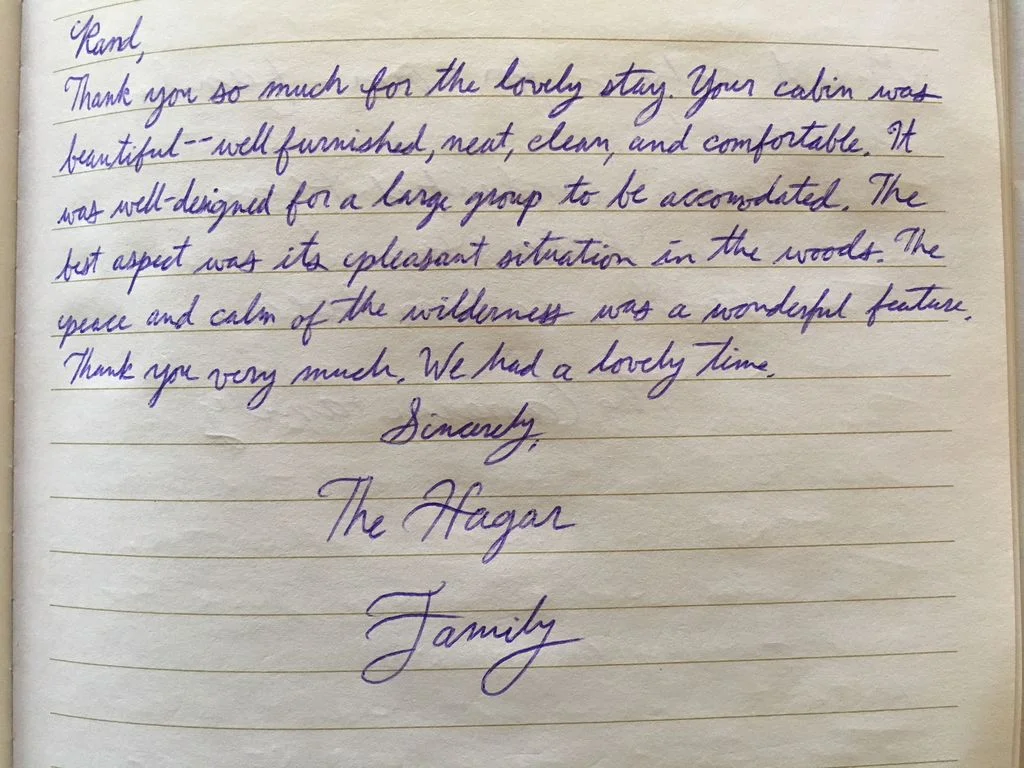 Rand,
Thank you so much for the lovely stay. Your cabin was
beautiful--well furnished, neat, clean, and comfortable. It
was well-designed for a large group to be accomodated. The
best aspect was its pleasant situation in the woods. The
peace and calm of the wilderness was a wonderful feature.
Thank you very much. We had a lovely time.
Sincerely,
The Hagar
Family